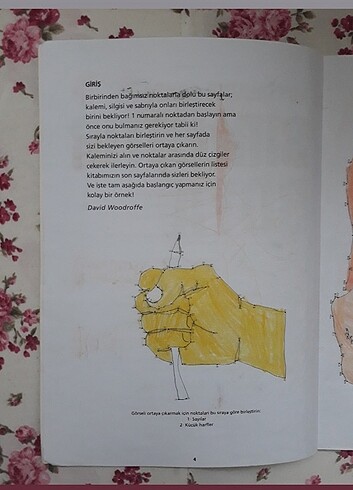 GİRİŞ
Birbirinden bağımsız noktalarla dolu bu sayfalar;
kalemi, silgisi ve sabrıyla onları birleştirecek
birini bekliyor! 1 numaralı noktadan başlayın ama
önce onu bulmanız gerekiyor tabii ki!
Sırayla noktaları birleştirin ve her sayfada
sizi bekleyen görselleri ortaya çıkarın.
Kaleminizi alın ve noktalar arasında düz çizgiler
çekerek ilerleyin. Ortaya çıkan görsellerin listesi
kitabımızın son sayfalarında sizleri bekliyor.
Ve işte tam aşağıda başlangıç yapmanız için
kolay bir örnek!
David Woodroffe
Görseli ortaya çıkarmak için noktaları bu sıraya göre birleştirin:
1- Sayılar
2- Küçük harfler
4